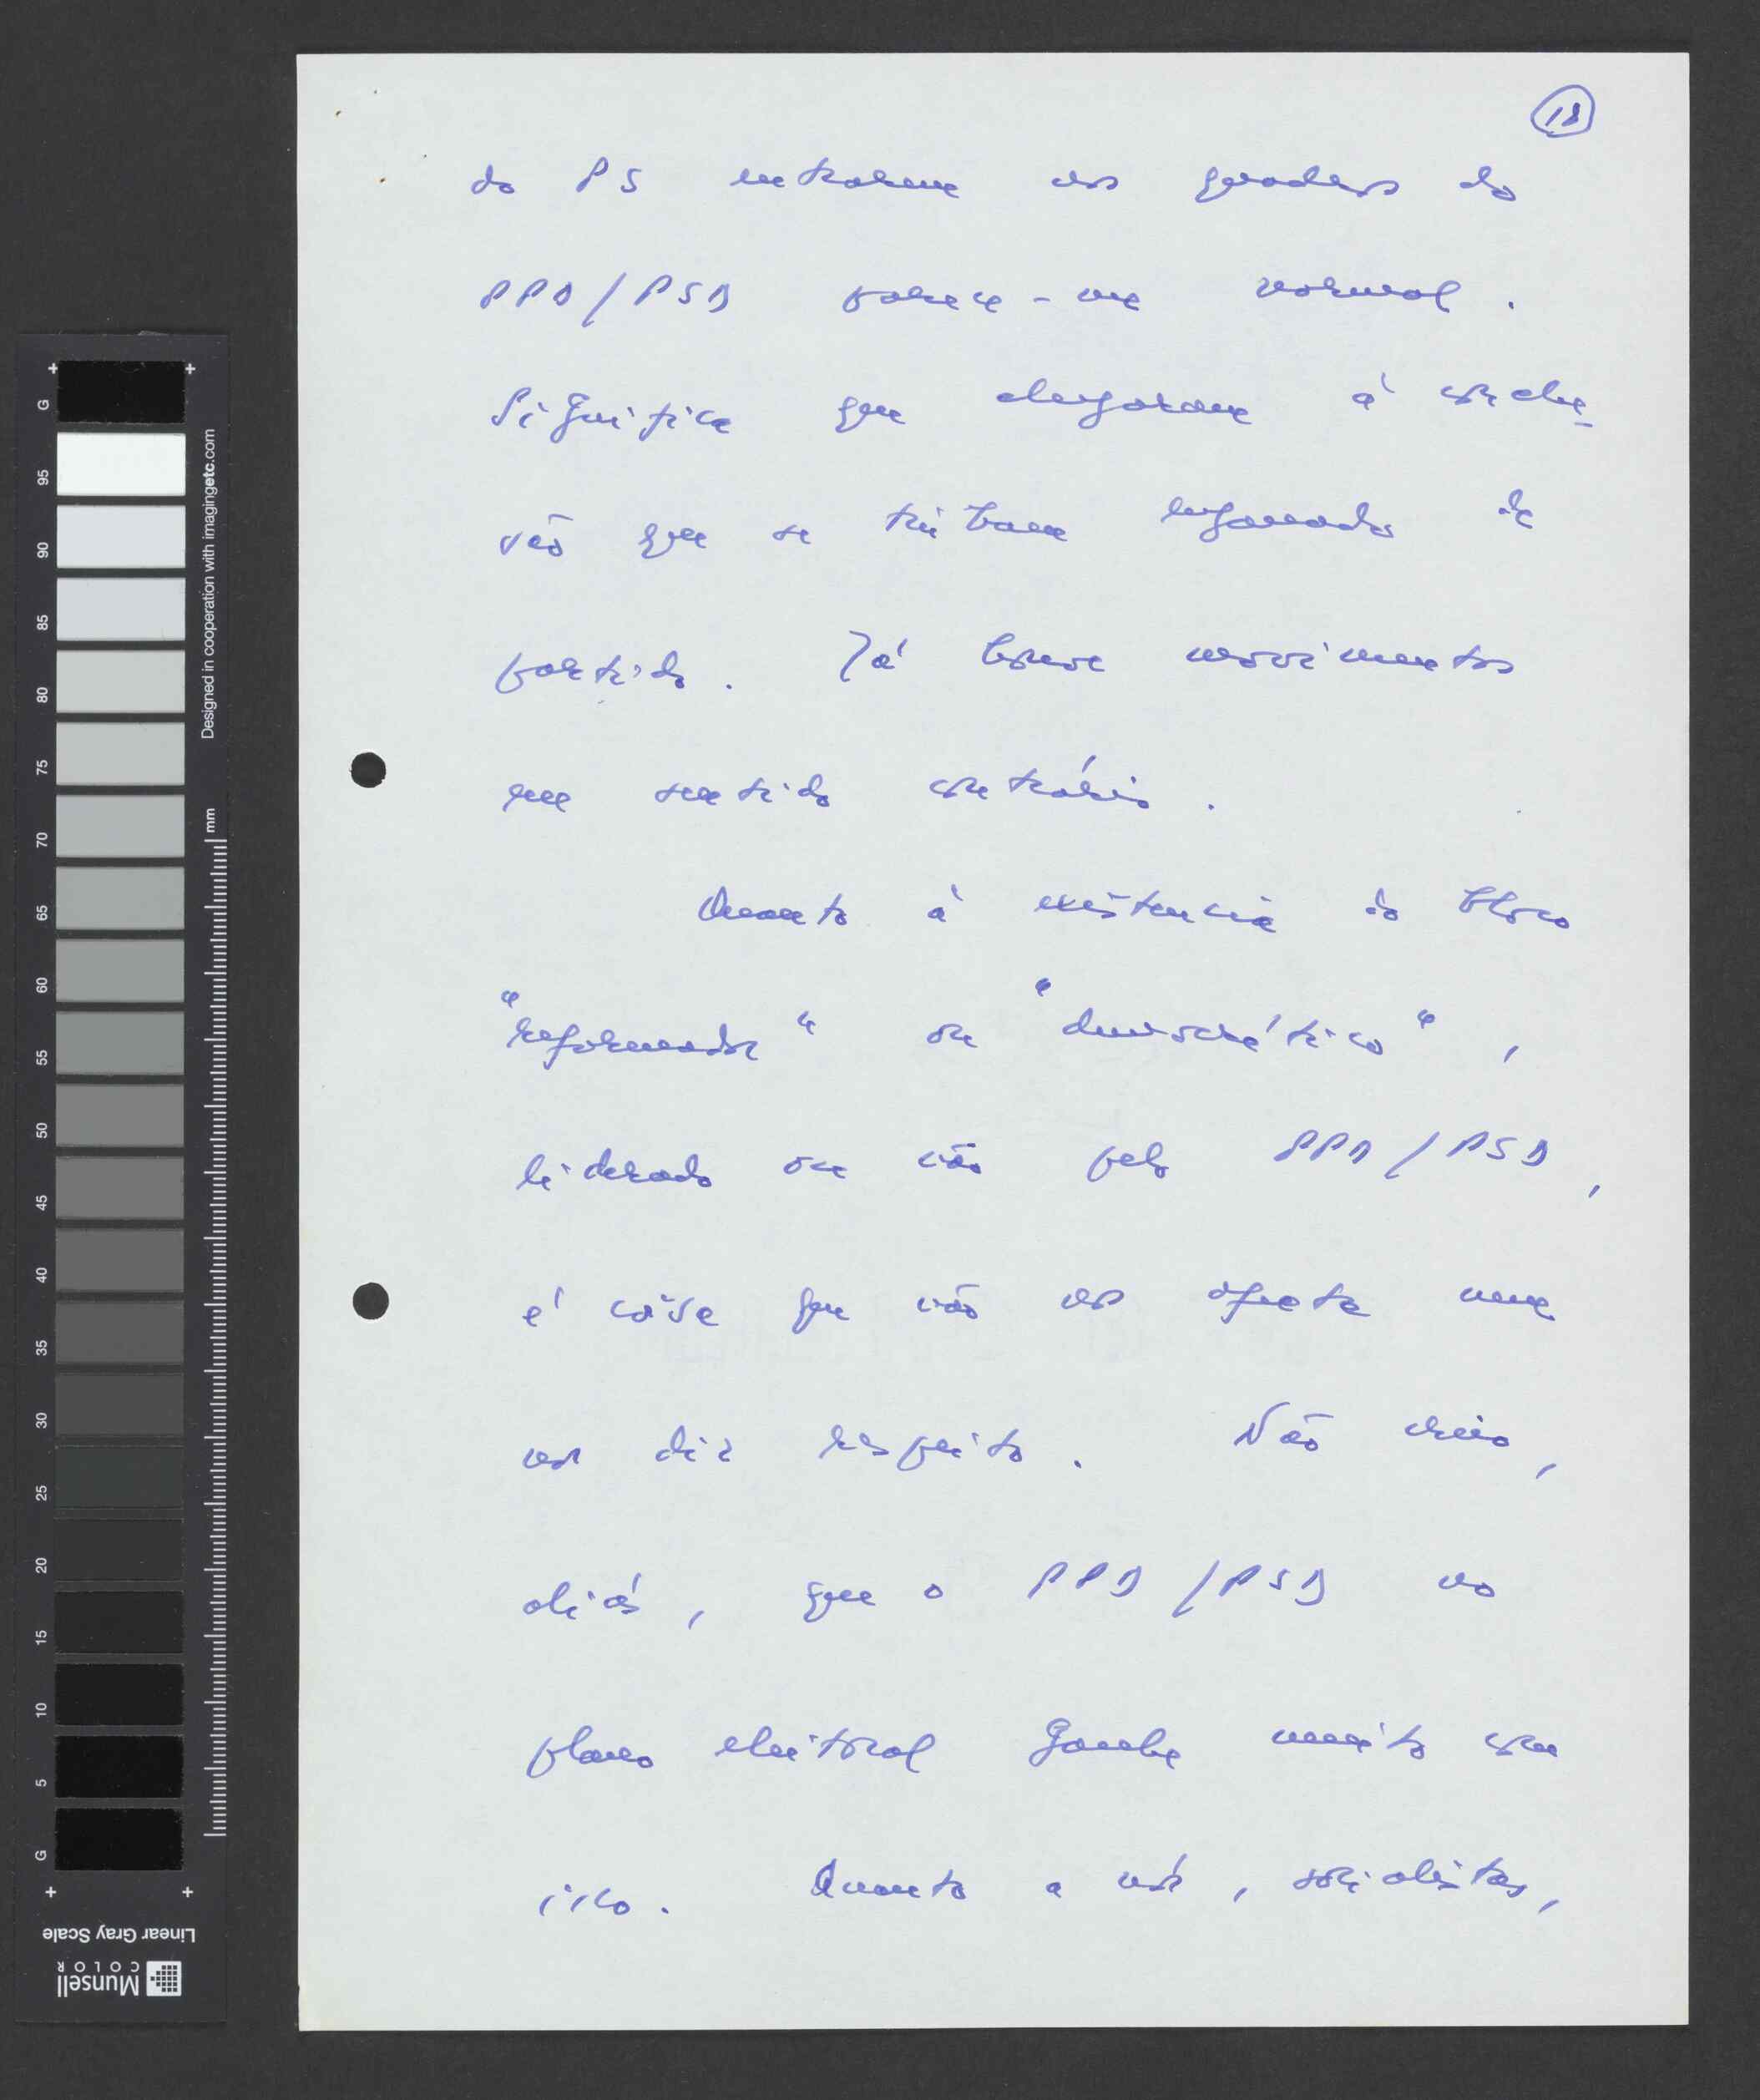 18
do PS entrarem nos quadros do
PPD/PSD parece-me normal.
Significa que chegaram à conclu-
são que se tinham enganado de
partido. Já houve movimentos
em sentido contrário.
Quanto à existência do bloco
"reformador" ou "democrático",
liderado ou não pelo PPD/PSD,
é coisa que não nos afecta nem
nos diz respeito. Não creio,
aliás, que o PPD/PSD no
plano eleitoral ganhe muito com
isso. Quanto a nós, socialistas,
G
95
90
85
80
75
70
65
60
55
50
45
40
35
30
25
20
15
10
5
G
mm
Designed in cooperation with imagingetc.com
Linear Gray Scale
Munsell
COLOR